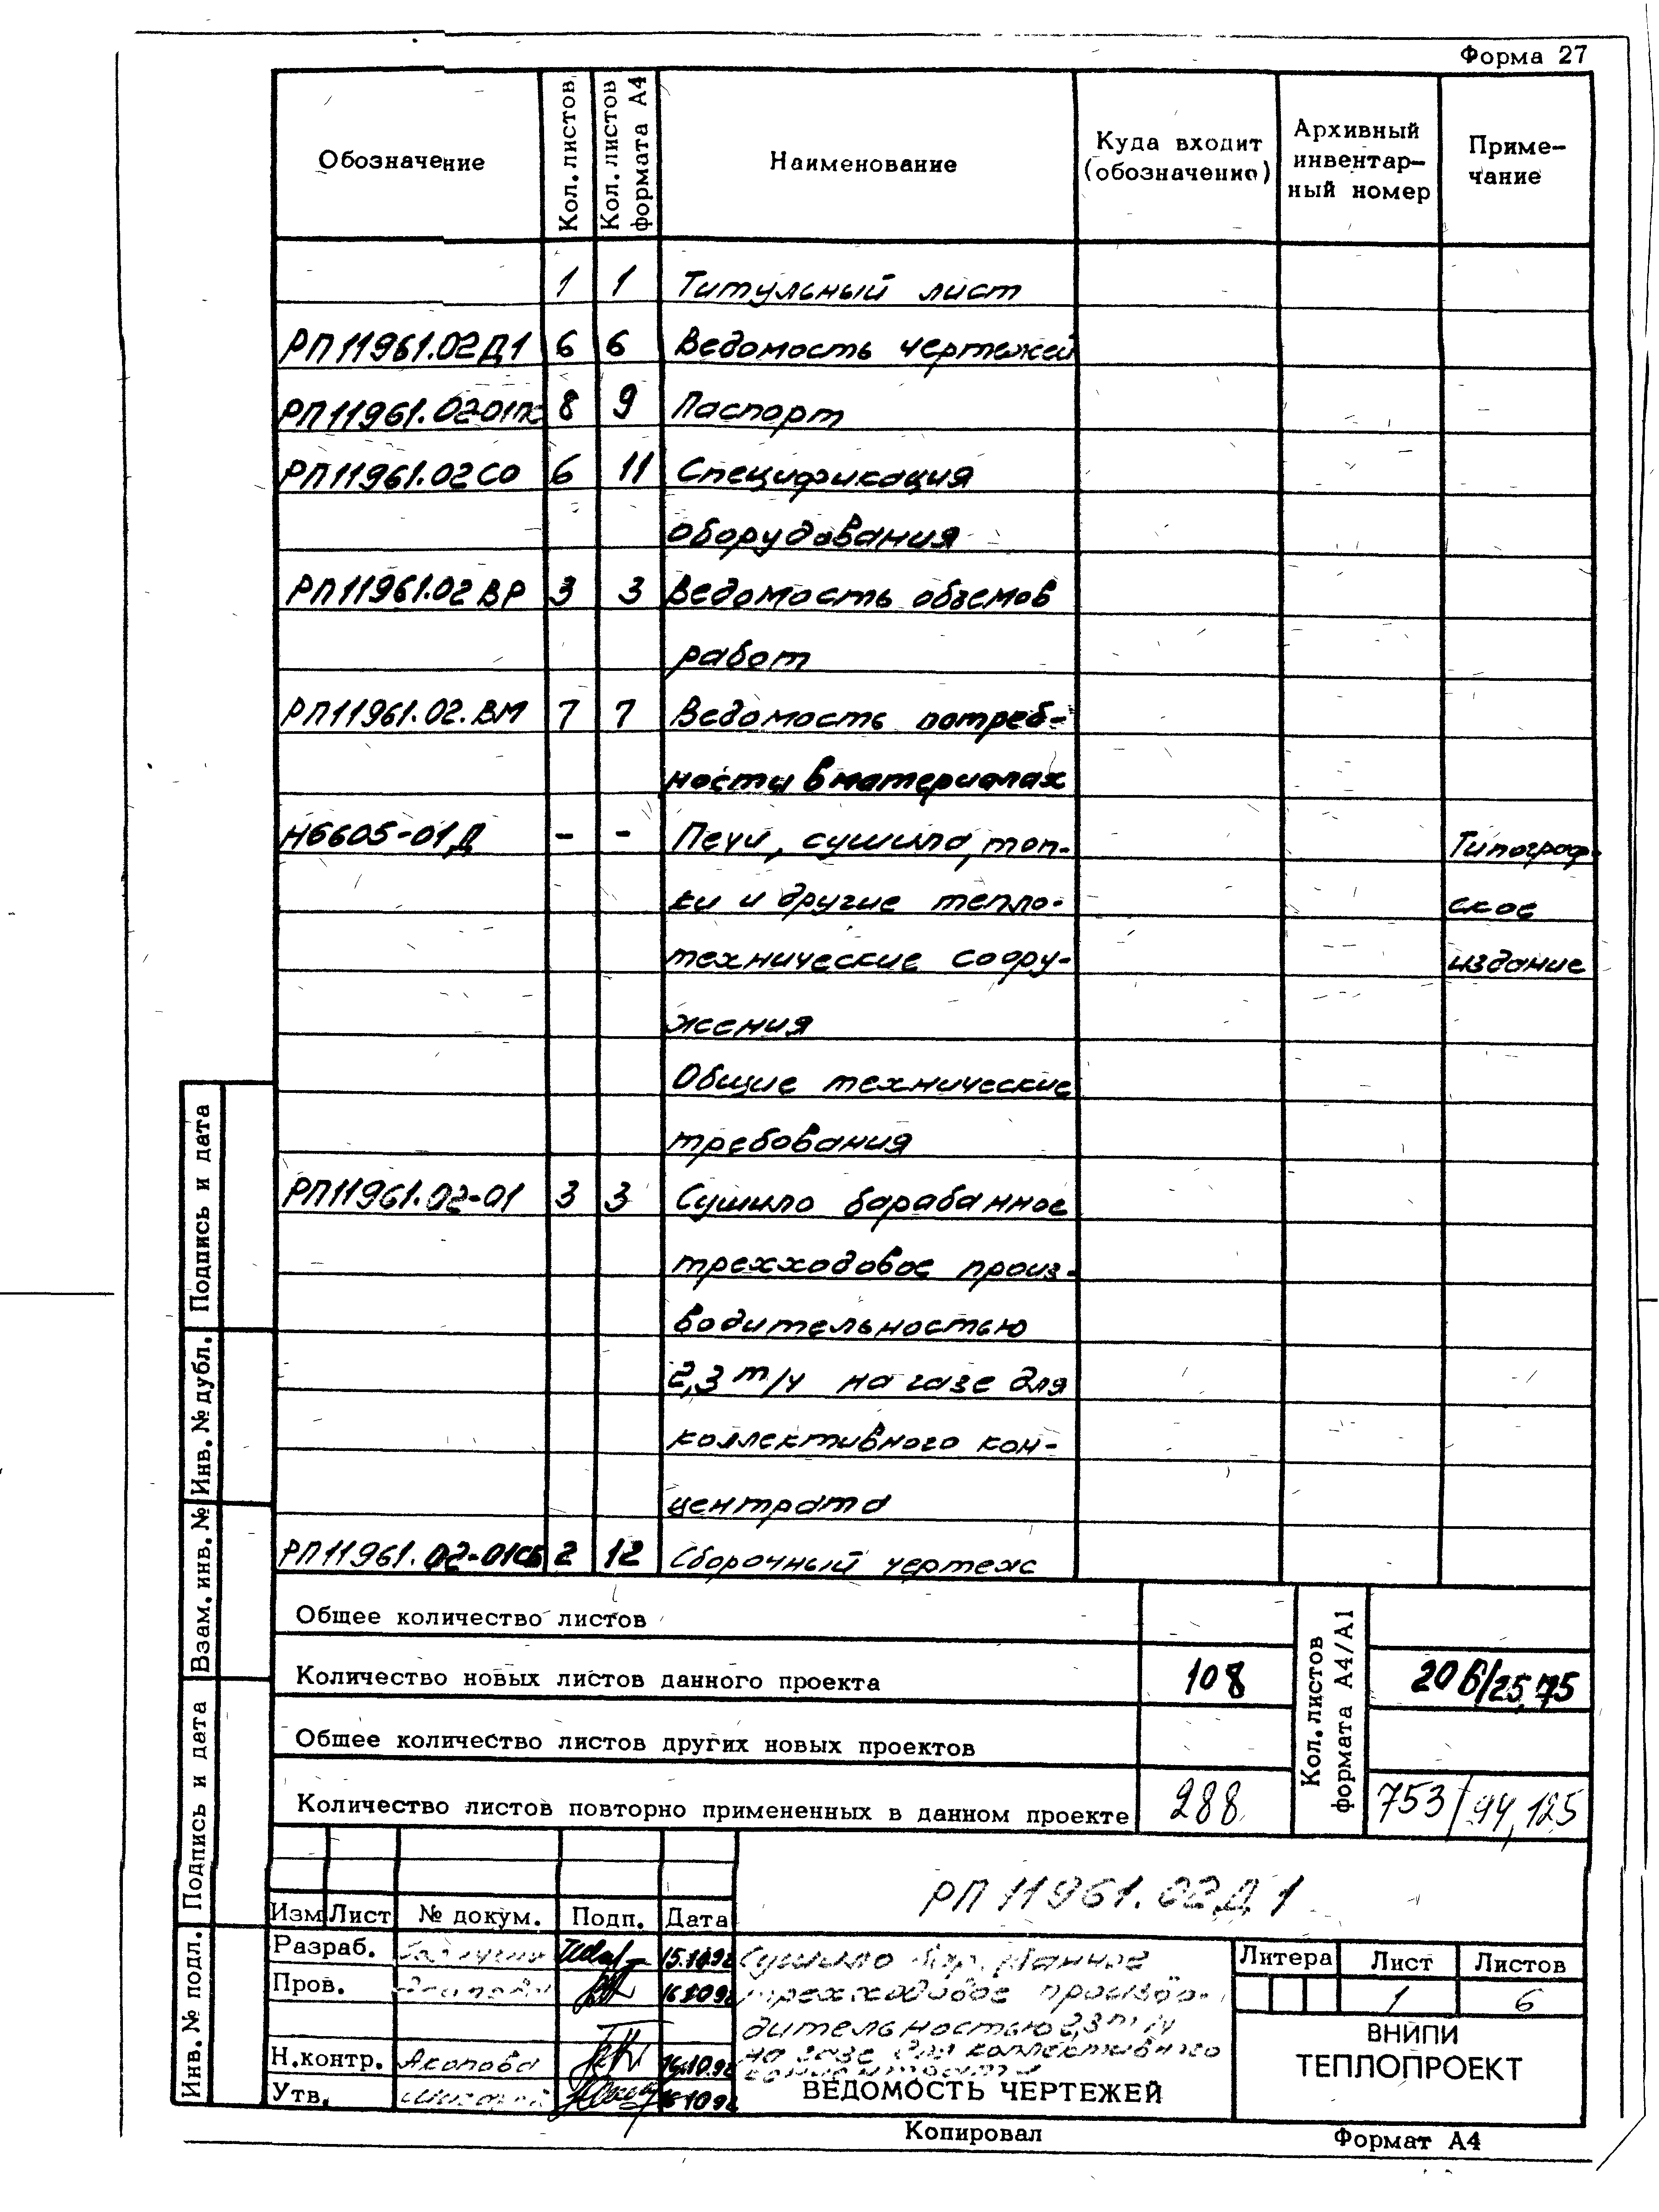 Форма 27
Обозначение | Кол. листов | Кол. листов формата А4 | Наименование | Куда входит (обозначение) | Архивный инвентар- ный номер | Приме- чание
1 1 Титульный лист
РП11961.02Д1 6 6 Ведомость чертежей
РП11961.02-01ПС 8 9 Паспорт
РП11961.02СО 6 11 Спецификация
оборудования
РП11961.02ВР 3 3 Ведомость объемов
работ
РП11961.02.ВМ 7 7 Ведомость потреб-
ности в материалах
Н6605-01Д - - Печи, сушила, топ- Типограф-
ки и другие тепло- ское
технические соору- издание
жения
Общие технические
требования
РП11961.02-01 3 3 Сушило барабанное
трехходовое произ-
водительностью
2,3 т/ч на газе для
коллективного кон-
центрата
РП11961.02-01СБ 2 12 Сборочный чертеж
Общее количество листов
Количество новых листов данного проекта 108
Общее количество листов других новых проектов
Количество листов повторно примененных в данном проекте 288
Кол. листов
формата А4/А1
206/25,75
753/94,125
РП 11961.02Д1
Изм Лист № докум. Подп. Дата
Разраб. 15.10.92
Пров. 16.10.92
Н.контр. Акопова 16.10.92
Утв. 16.10.92
Сушило барабанное
трехходовое произво-
дительностью 2,3 т/ч
на газе для коллективного
концентрата
ВЕДОМОСТЬ ЧЕРТЕЖЕЙ
Литера Лист Листов
1 6
ВНИПИ
ТЕПЛОПРОЕКТ
Копировал Формат А4
Подпись и дата
Инв. № дубл.
Взам. инв. №
Подпись и дата
Инв. № подл.